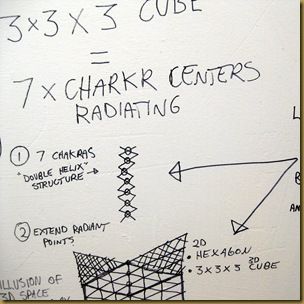 3x3x3 CUBE
=
7 x CHARKR CENTERS
RADIATING
① 7 CHAKRAS
"DOUBLE HELIX"
STRUCTURE →
② EXTEND RADIANT
POINTS
2D
• HEXAGON
• 3x3x3 3D CUBE
ILLUSION OF
3D SPACE